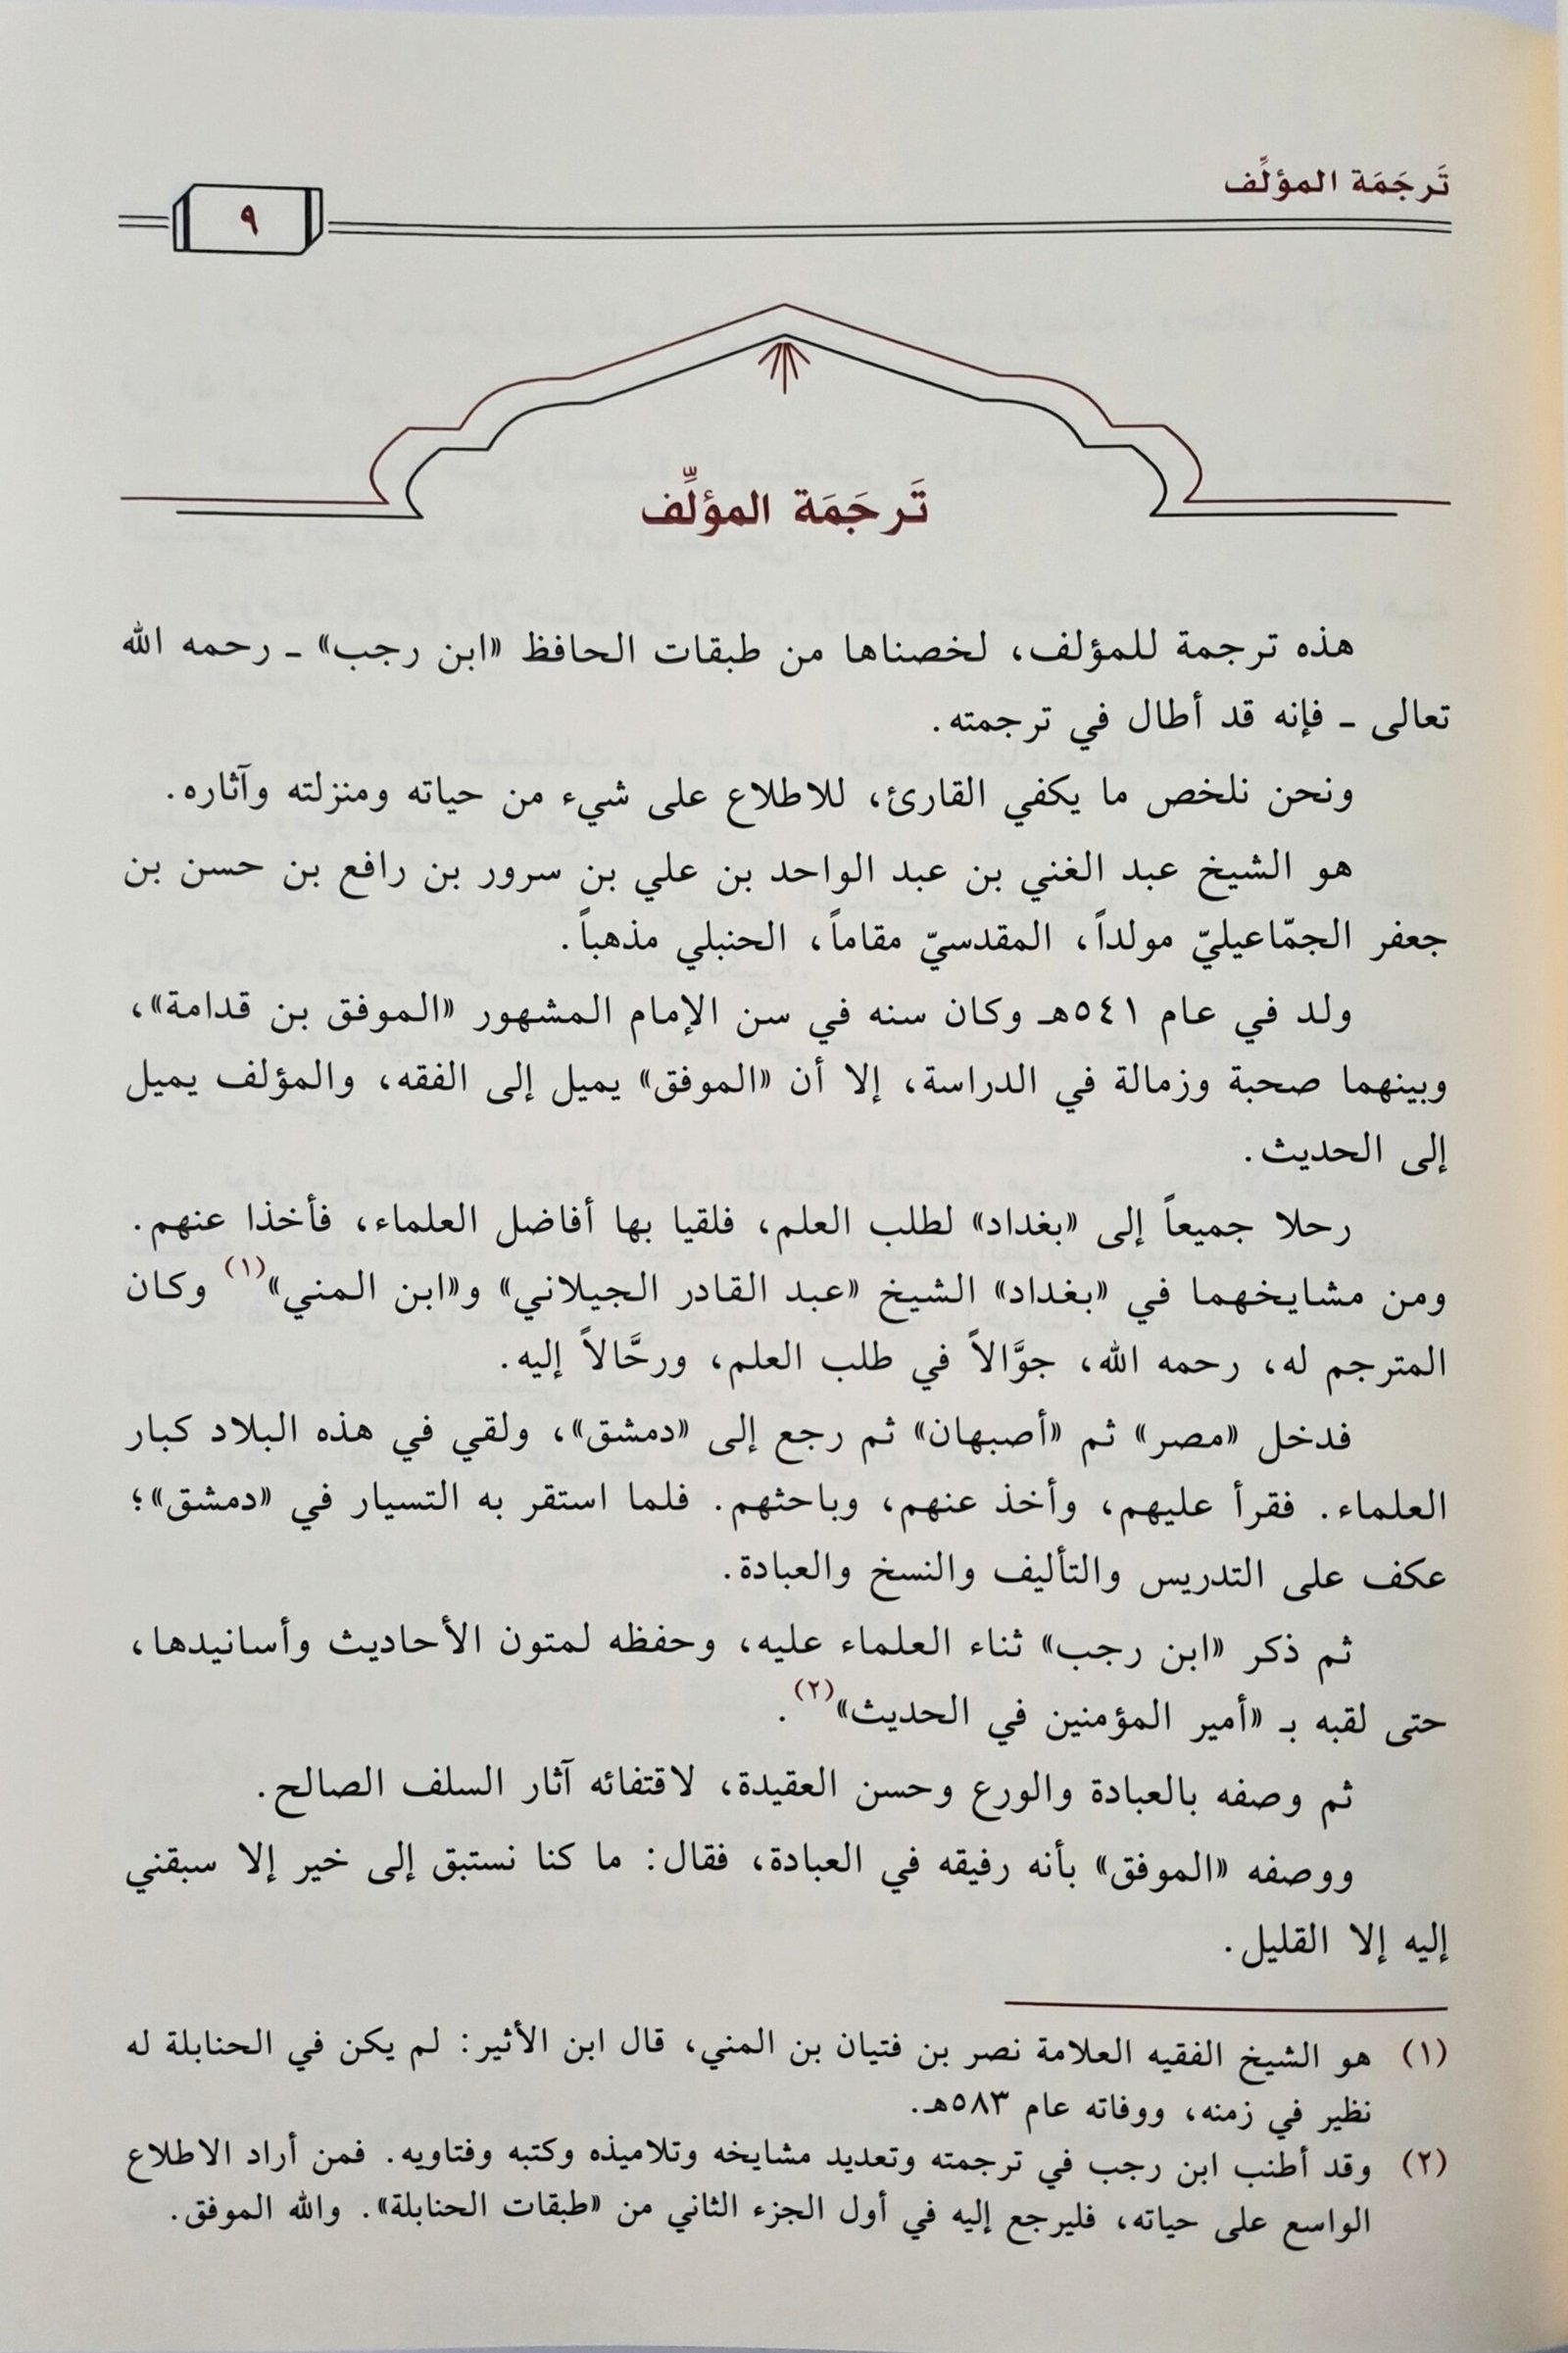 تَرجَمَة المؤلِّف
٩
تَرجَمَة المؤلِّف
هذه ترجمة للمؤلف، لخصناها من طبقات الحافظ «ابن رجب» ـ رحمه الله
تعالى ـ فإنه قد أطال في ترجمته.
ونحن نلخص ما يكفي القارئ، للاطلاع على شيء من حياته ومنزلته وآثاره.
هو الشيخ عبد الغني بن عبد الواحد بن علي بن سرور بن رافع بن حسن بن
جعفر الجمّاعيليّ مولداً، المقدسيّ مقاماً، الحنبلي مذهباً.
ولد في عام ٥٤١هـ وكان سنه في سن الإمام المشهور «الموفق بن قدامة»،
وبينهما صحبة وزمالة في الدراسة، إلا أن «الموفق» يميل إلى الفقه، والمؤلف يميل
إلى الحديث.
رحلا جميعاً إلى «بغداد» لطلب العلم، فلقيا بها أفاضل العلماء، فأخذا عنهم.
ومن مشايخهما في «بغداد» الشيخ «عبد القادر الجيلاني» و«ابن المني»(١) وكان
المترجم له، رحمه الله، جوَّالاً في طلب العلم، ورحَّالاً إليه.
فدخل «مصر» ثم «أصبهان» ثم رجع إلى «دمشق»، ولقي في هذه البلاد كبار
العلماء. فقرأ عليهم، وأخذ عنهم، وباحثهم. فلما استقر به التسيار في «دمشق»؛
عكف على التدريس والتأليف والنسخ والعبادة.
ثم ذكر «ابن رجب» ثناء العلماء عليه، وحفظه لمتون الأحاديث وأسانيدها،
حتى لقبه بـ «أمير المؤمنين في الحديث»(٢).
ثم وصفه بالعبادة والورع وحسن العقيدة، لاقتفائه آثار السلف الصالح.
ووصفه «الموفق» بأنه رفيقه في العبادة، فقال: ما كنا نستبق إلى خير إلا سبقني
إليه إلا القليل.
(١) هو الشيخ الفقيه العلامة نصر بن فتيان بن المني، قال ابن الأثير: لم يكن في الحنابلة له
نظير في زمنه، ووفاته عام ٥٨٣هـ.
(٢) وقد أطنب ابن رجب في ترجمته وتعديد مشايخه وتلاميذه وكتبه وفتاويه. فمن أراد الاطلاع
الواسع على حياته، فليرجع إليه في أول الجزء الثاني من «طبقات الحنابلة». والله الموفق.